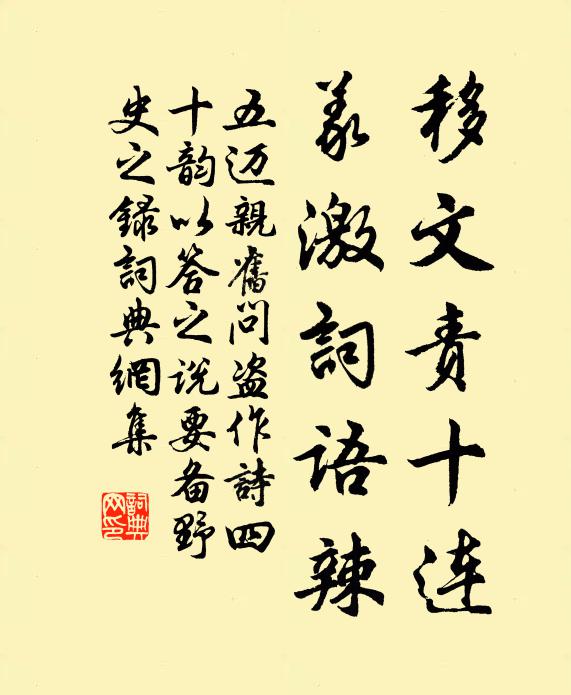 移文责十连
义激词语辣
五迈親舊问盗作詩四
十韵以答之说要备野
史之録詞典網集
詞典
网印